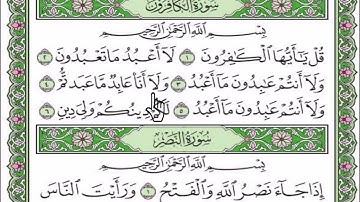 سُورَةُ الْكَافِرُونَ
بِسْمِ اللَّهِ الرَّحْمَٰنِ الرَّحِيمِ
قُلْ يَا أَيُّهَا الْكَافِرُونَ ١ لَا أَعْبُدُ مَا تَعْبُدُونَ ٢
وَلَا أَنتُمْ عَابِدُونَ مَا أَعْبُدُ ٣ وَلَا أَنَا عَابِدٌ مَّا عَبَدتُّمْ ٤
وَلَا أَنتُمْ عَابِدُونَ مَا أَعْبُدُ ٥ دِينُكُمْ وَلِيَ دِينِ ٦
سُورَةُ النَّصْرِ
بِسْمِ اللَّهِ الرَّحْمَٰنِ الرَّحِيمِ
إِذَا جَاءَ نَصْرُ اللَّهِ وَالْفَتْحُ ١ وَرَأَيْتَ النَّاسَ